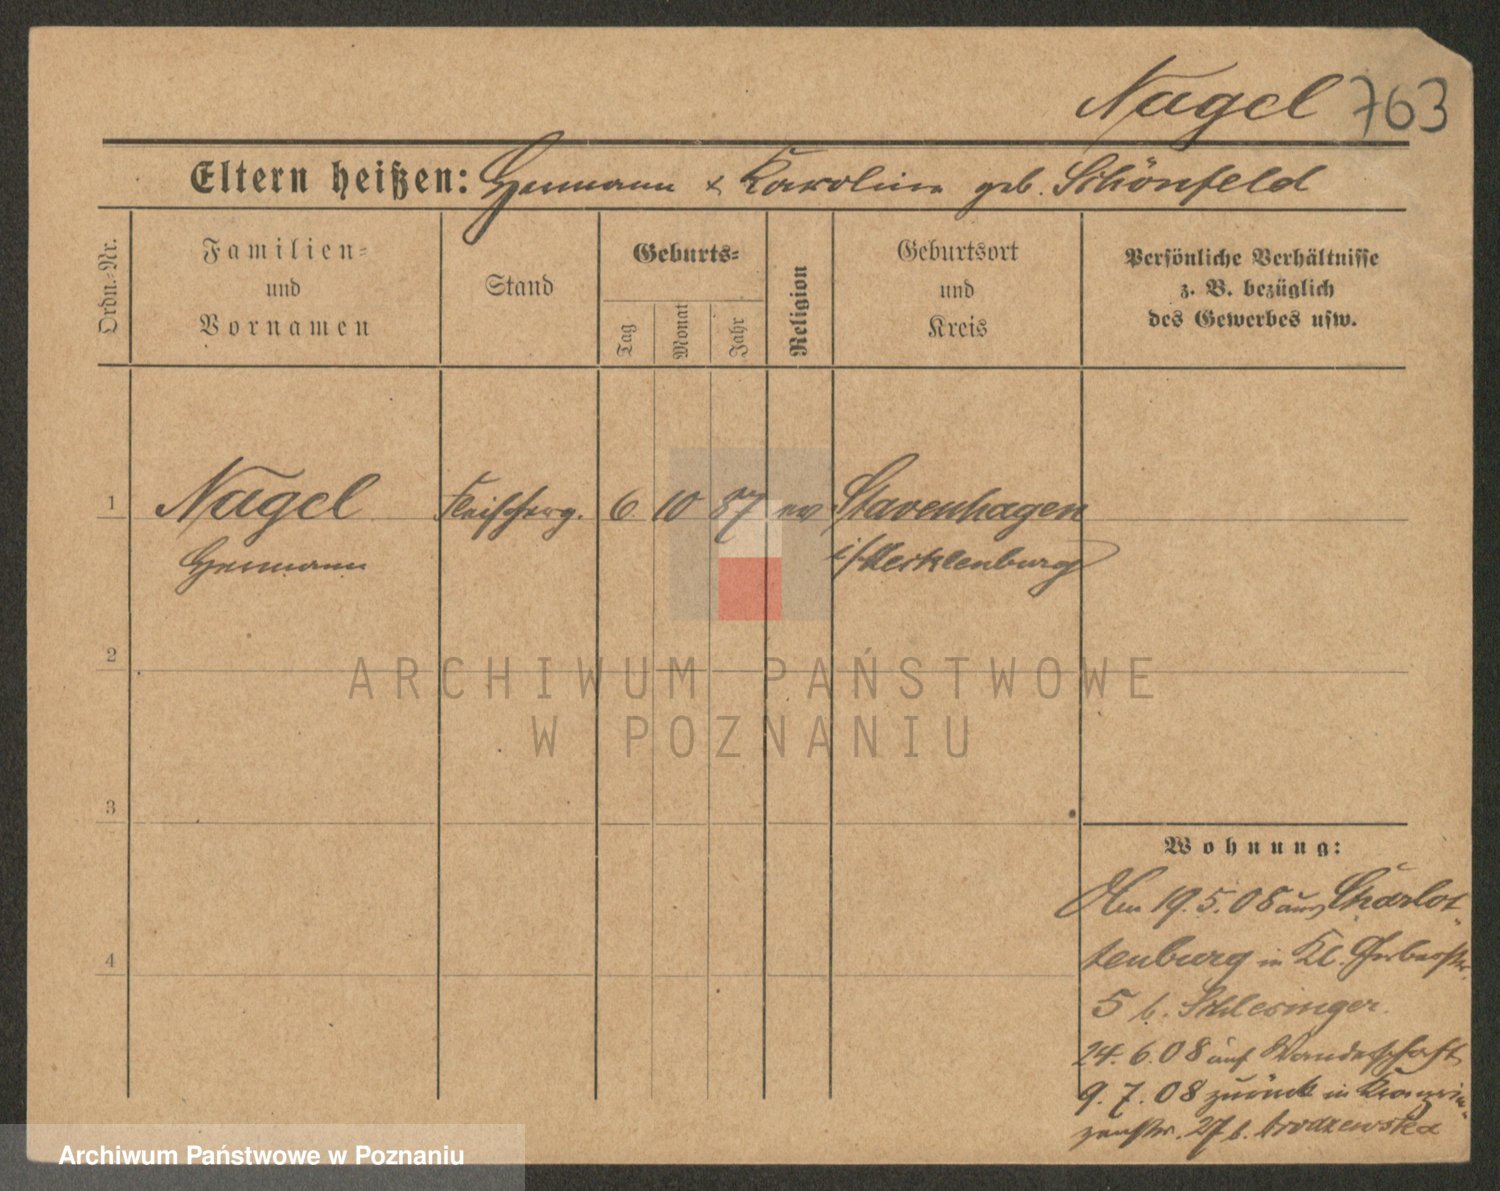 Nagel 763
Eltern heißen: Hermann & Karoline geb. Schönfeld
Ordn.-Nr.
Familien-
und
Vornamen
Stand
Geburts-
Tag
Monat
Jahr
Religion
Geburtsort
und
Kreis
Persönliche Verhältnisse
z. B. bezüglich
des Gewerbes usw.
1 Nagel Fleischerg. 6 10 87 ev Stavenhagen
Hermann i/Mecklenburg
2
3
4
ARCHIWUM PAŃSTWOWE
W POZNANIU
Wohnung:
19.5.08 aus Charlot-
tenburg in Kl. Gerberstr.
5 b. Schlesinger.
24.6.08 auf Wanderschaft
9.7.08 zurück in
27 b. Brodzewska
Archiwum Państwowe w Poznaniu